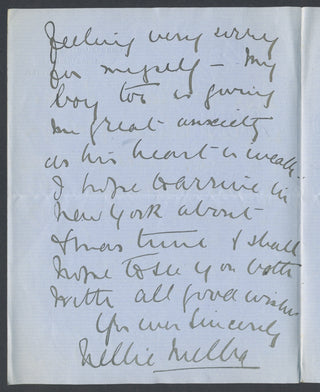 feeling very sorry
for myself – My
boy too is giving
me great anxiety
as his heart is weak.
I hope to arrive in
New York about
Xmas time & shall
hope to see you both
With all good wishes
Yrs ever Sincerely
Nellie Melba